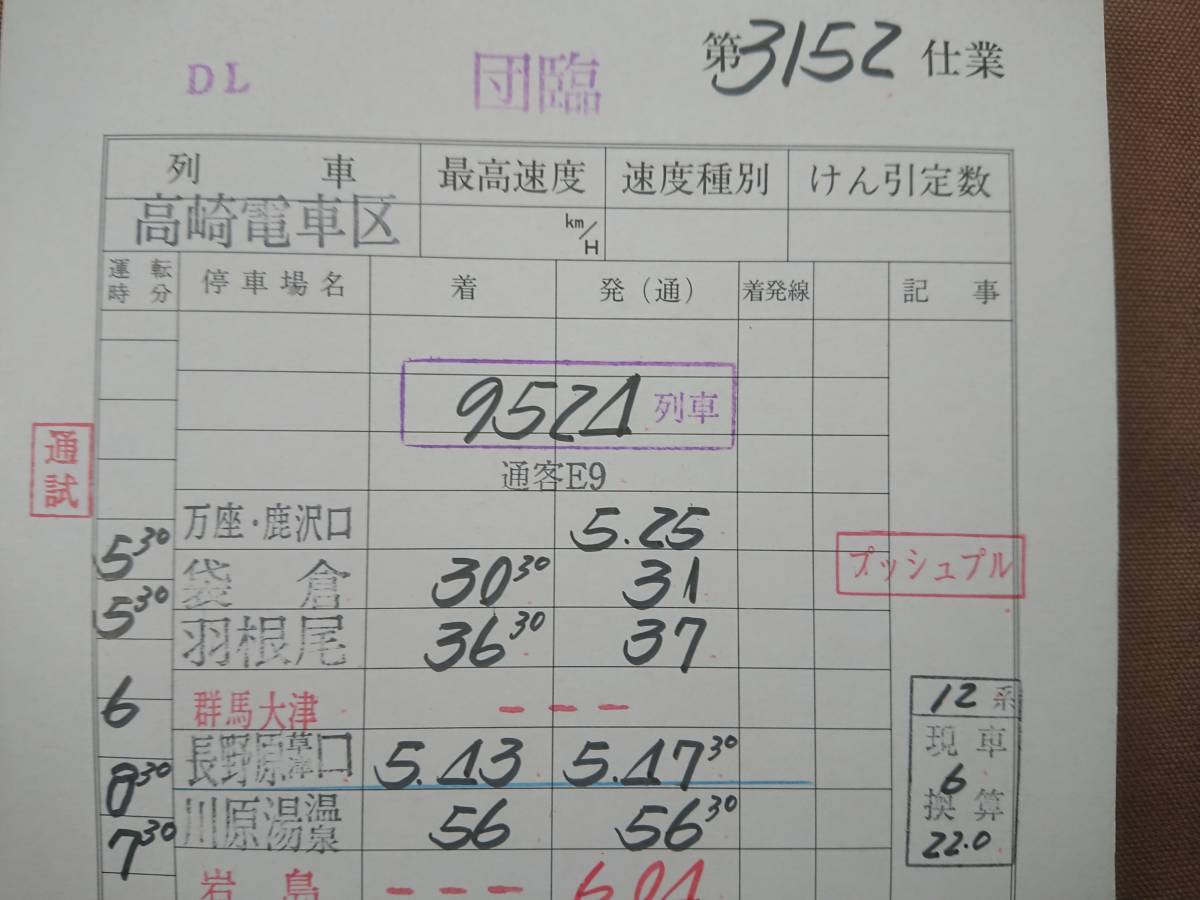 DL 団臨 第3152仕業
列車 最高速度 速度種別 けん引定数
高崎電車区 km/H
運転時分 停車場名 着 発(通) 着発線 記事
9524 列車
通客E9
通試
万座・鹿沢口 5.25
5 30
プッシュプル
袋倉 30 30 31
5 30
羽根尾 36 30 37
6
群馬大津 - - -
12系
長野原草津口 5.43 5.47 30
現車
6
8 30
川原湯温泉 56 56 30
換算
22.0
7 30
岩島 - - - 6.04